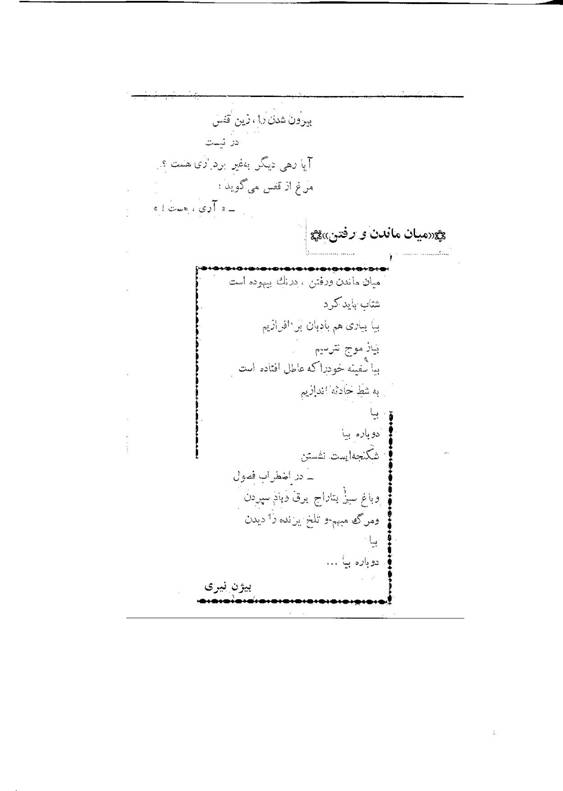 بیرون شدن را، زین قفس
در نیست
آیا رهی دیگر به‌غیر بردباری هست ؟
مرغ از قفس می‌گوید :
ـ « آری ، هست ! »
«میان ماندن و رفتن»
میان ماندن ورفتن ، درنك بیهوده است
شتاب باید کرد
بیا بیاری هم بادبان بر افرازیم
بیاز موج نترسیم
بیا سفینه خودراکه عاطل افتاده است
به شط حادثه اندازیم
بیا
دوباره بیا
شکنجه‌ایست نشستن
ـ در اضطراب فصول
وباغ سبز بتاراج برق وباد سپردن
ومرگ مبهم و تلخ پرنده را دیدن
بیا
دوباره بیا ...
بیژن نیری